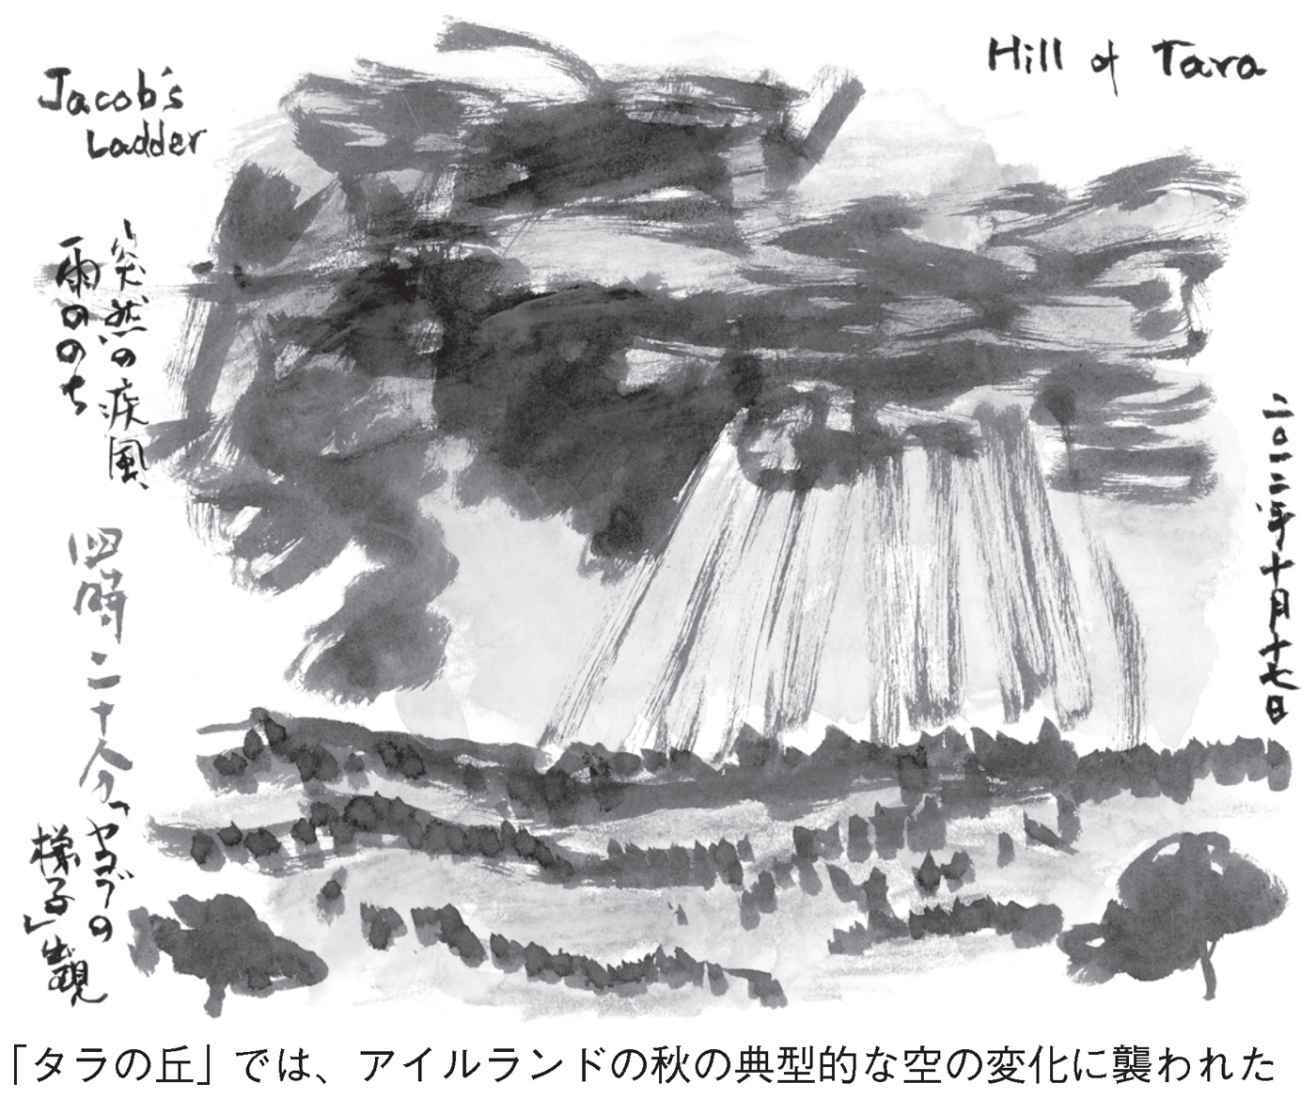 Jacob's
Ladder
Hill of Tara
突然の疾風、
雨ののち
四時二十分「ヤコブの
梯子」出現
二〇一二年十月十七日
「タラの丘」では、アイルランドの秋の典型的な空の変化に襲われた